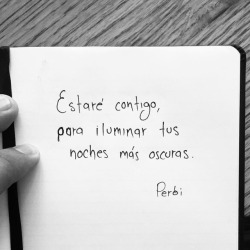 Estaré contigo,
para iluminar tus
noches más oscuras.
Perbi